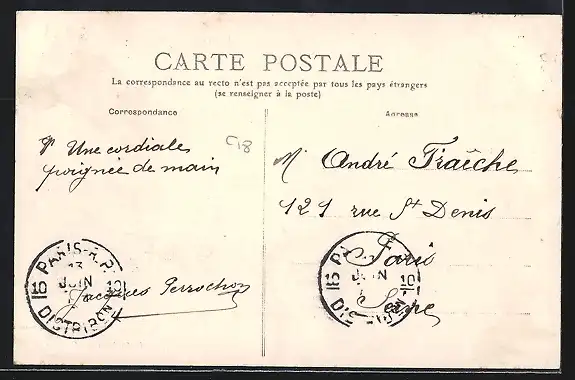 CARTE POSTALE
La correspondance au recto n'est pas acceptée par tous les pays étrangers
(se renseigner à la poste)
Correspondance
Adresse
C18
Une cordiale
poignée de main
Jacques Perrochon
M. André Fraîche
121 rue St Denis
Paris
Seine
PARIS-R.P.
13
JUIN
10 10
DISTRIBON
PA
13
JUIN
10
DIS